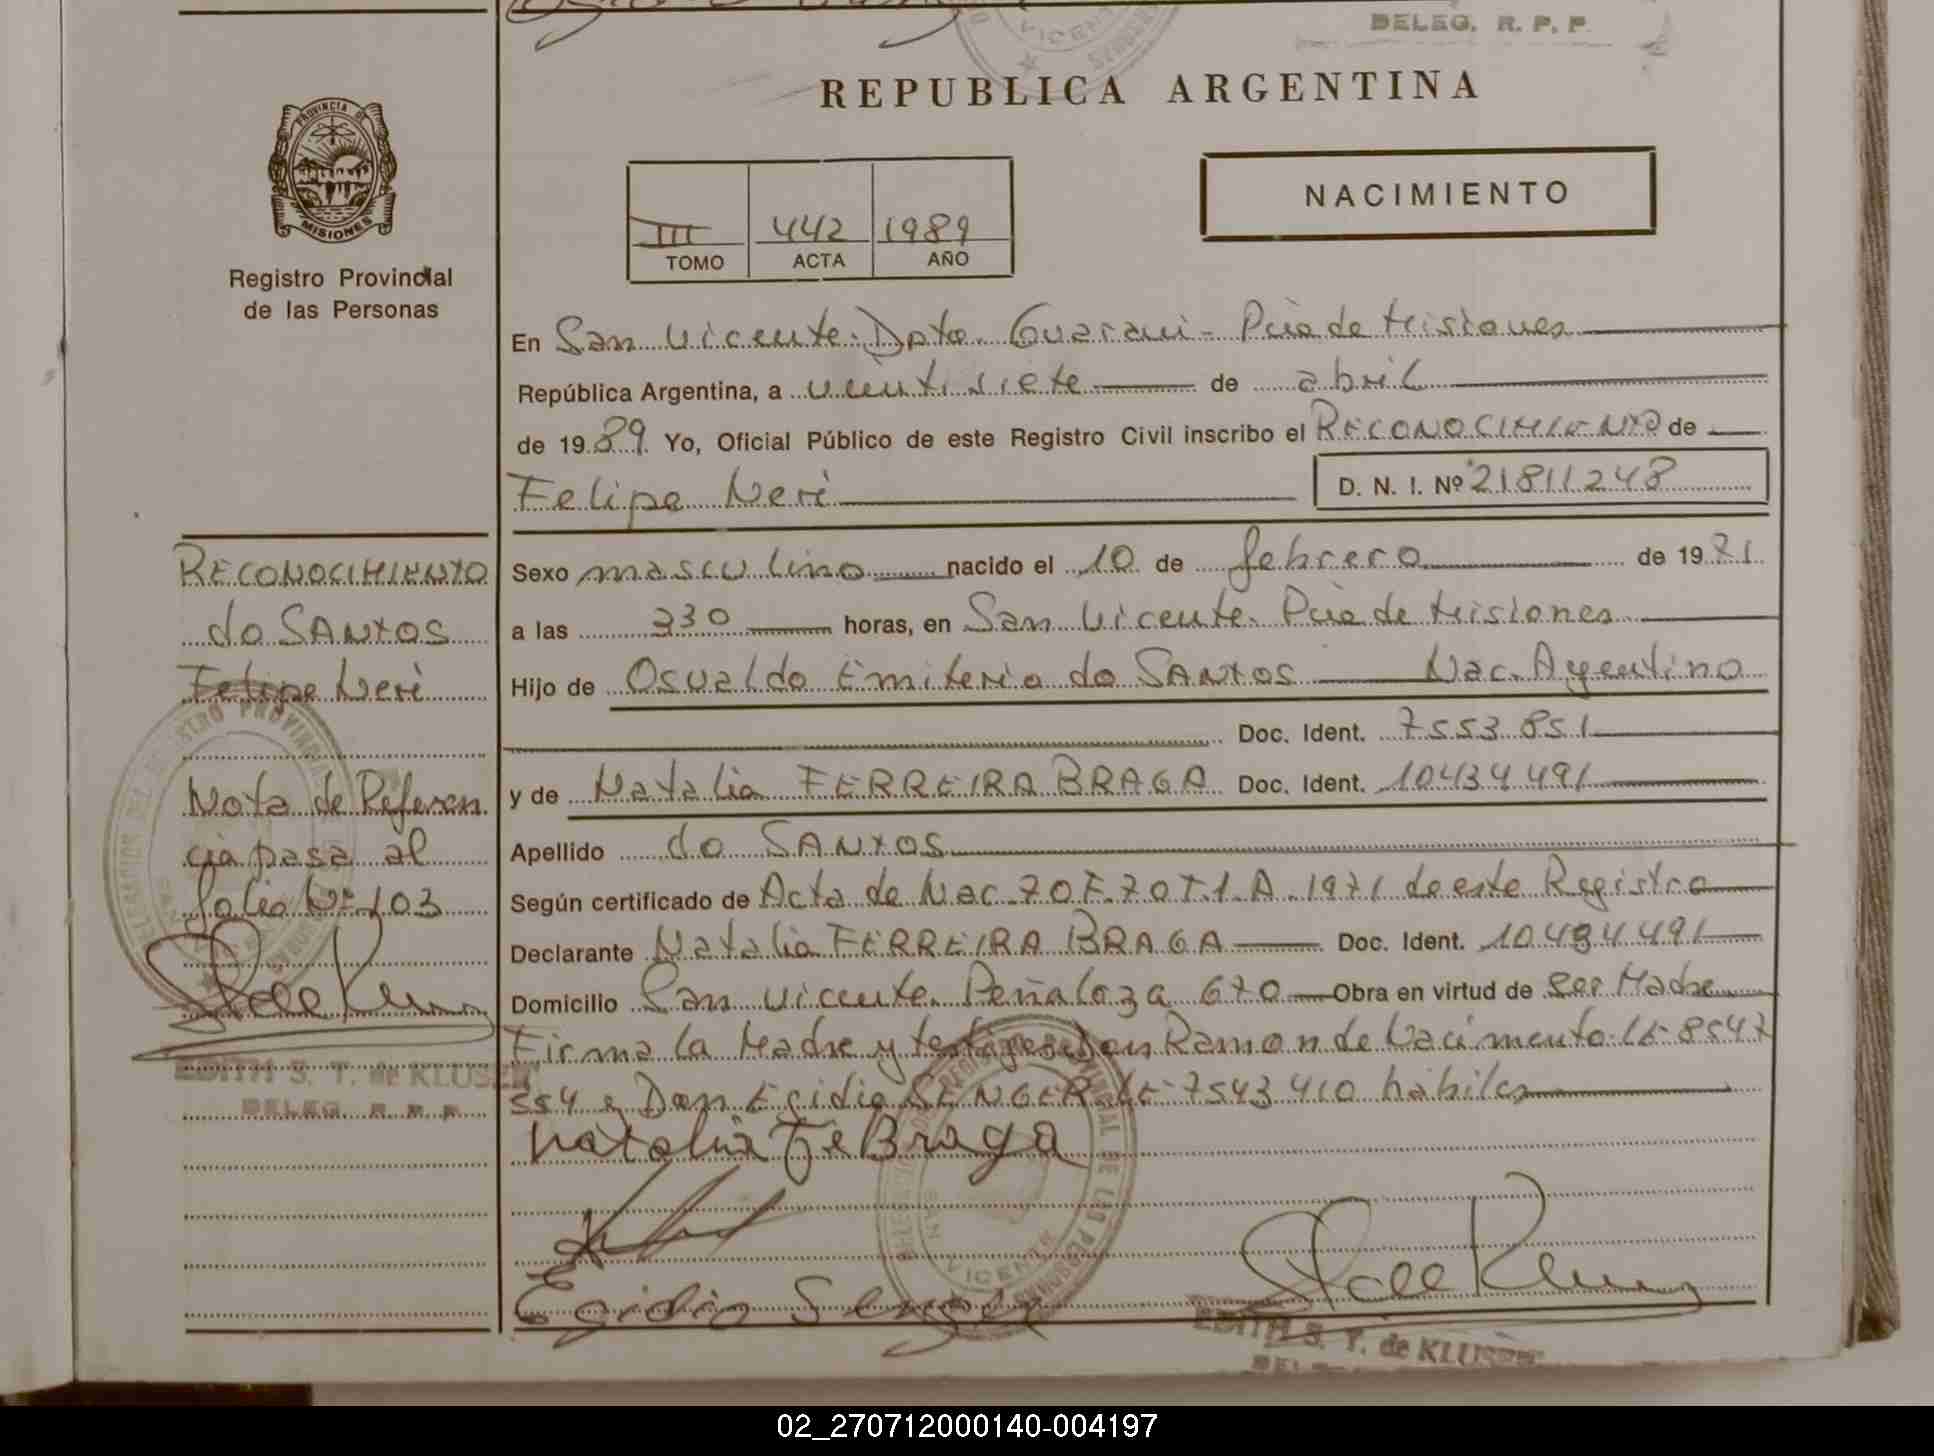 DELEG. R. P. P.
VICENTE
REPUBLICA ARGENTINA
PROVINCIA DE
MISIONES
Registro Provincial
de las Personas
III 442 1989
TOMO ACTA AÑO
NACIMIENTO
En San Vicente. Dpto. Guarani - Pcia de Misiones
República Argentina, a veintisiete de abril
de 1989 Yo, Oficial Público de este Registro Civil inscribo el RECONOCIMIENTO de
Felipe Neri D. N. I. Nº 21811248
RECONOCIMIENTO
do SANTOS
Felipe Neri
Nota de Referen
cia pasa al
folio Nº 103
EDITH S. T. de KLUSEN
DELEG. R. P. P.
Sexo masculino nacido el 10 de febrero de 1971
a las 330 horas, en San Vicente. Pcia de Misiones
Hijo de Osvaldo Emiterio do SANTOS Nac. Argentino
Doc. Ident. 7553.851
y de Natalia FERREIRA BRAGA Doc. Ident. 10434491
Apellido do SANTOS
Según certificado de Acta de Nac. 70F.70T.1.A.1971 de este Registro
Declarante Natalia FERREIRA BRAGA Doc. Ident. 10.434.491
Domicilio San Vicente. Peñaloza 670 Obra en virtud de ser Madre
Firma la Madre y testigos: Don Ramon de Nacimento. LE 8547
554 y Don Egidio SENGER. LE-7543410 habiles
Natalia Fe Braga
VICENTE
Egidio Senger
EDITH S. T. de KLUSEN
02_270712000140-004197